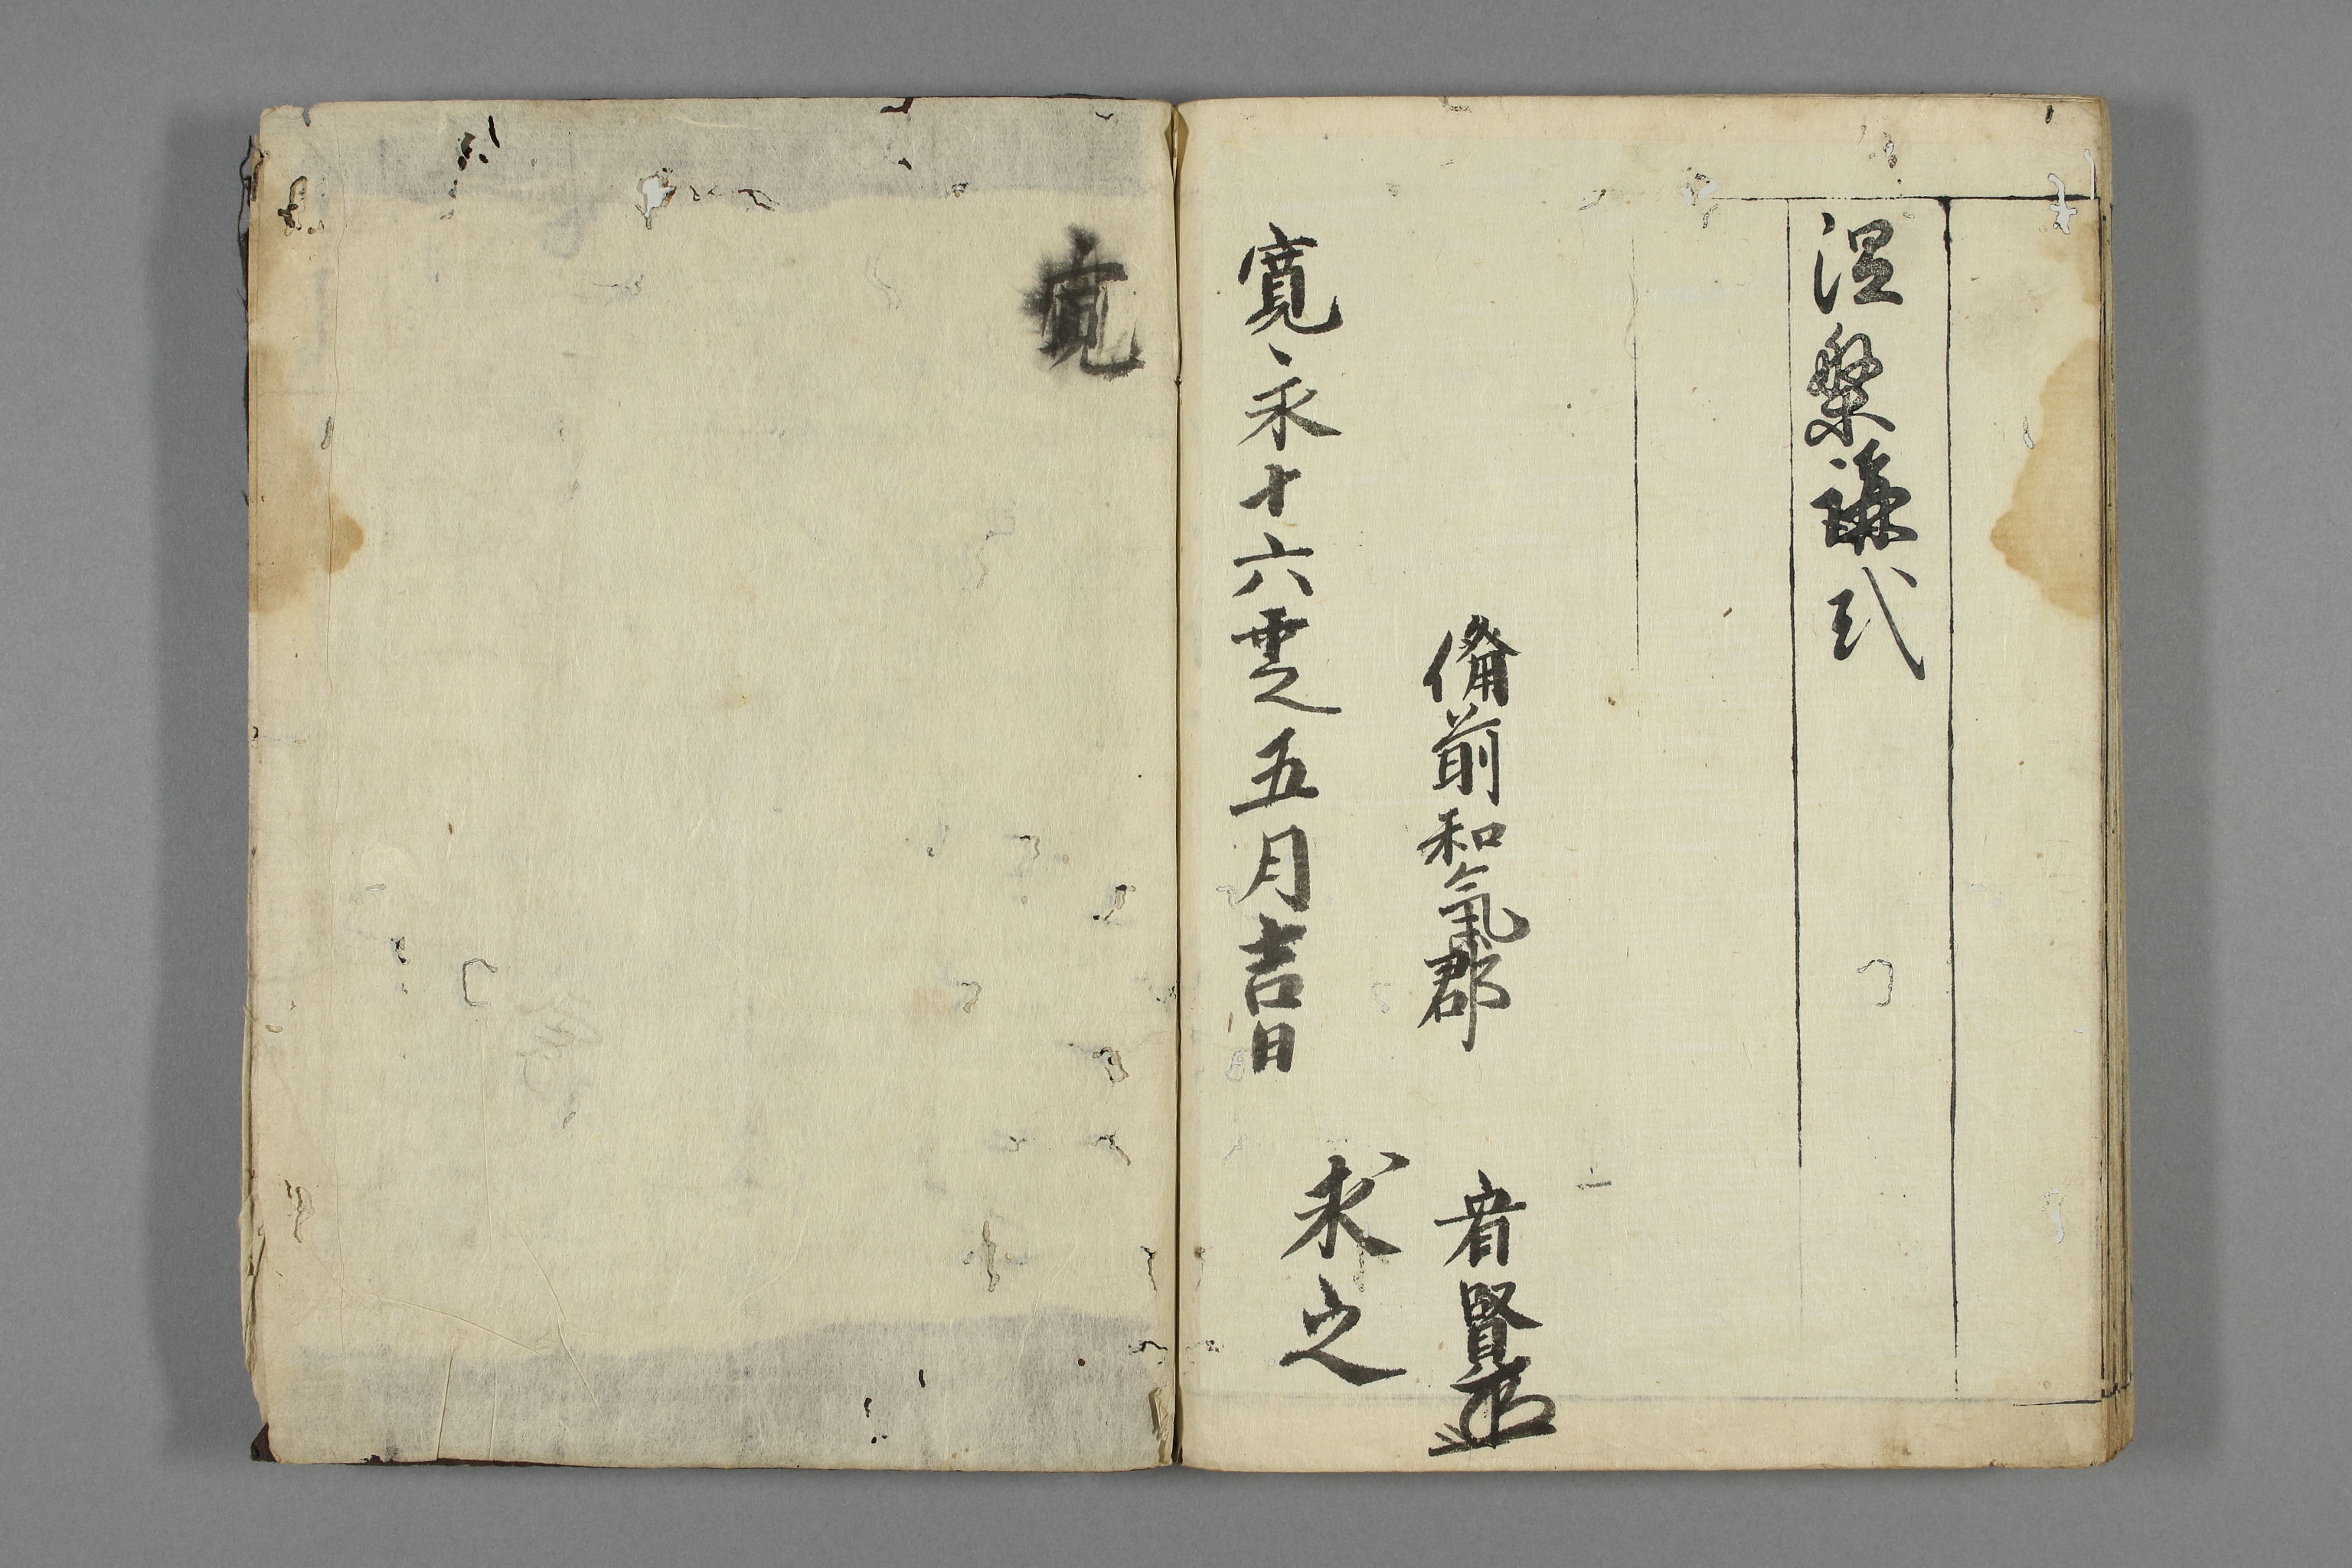 涅槃講式
備前和氣郡 音賢
求之
寛永十六 五月吉日
寛